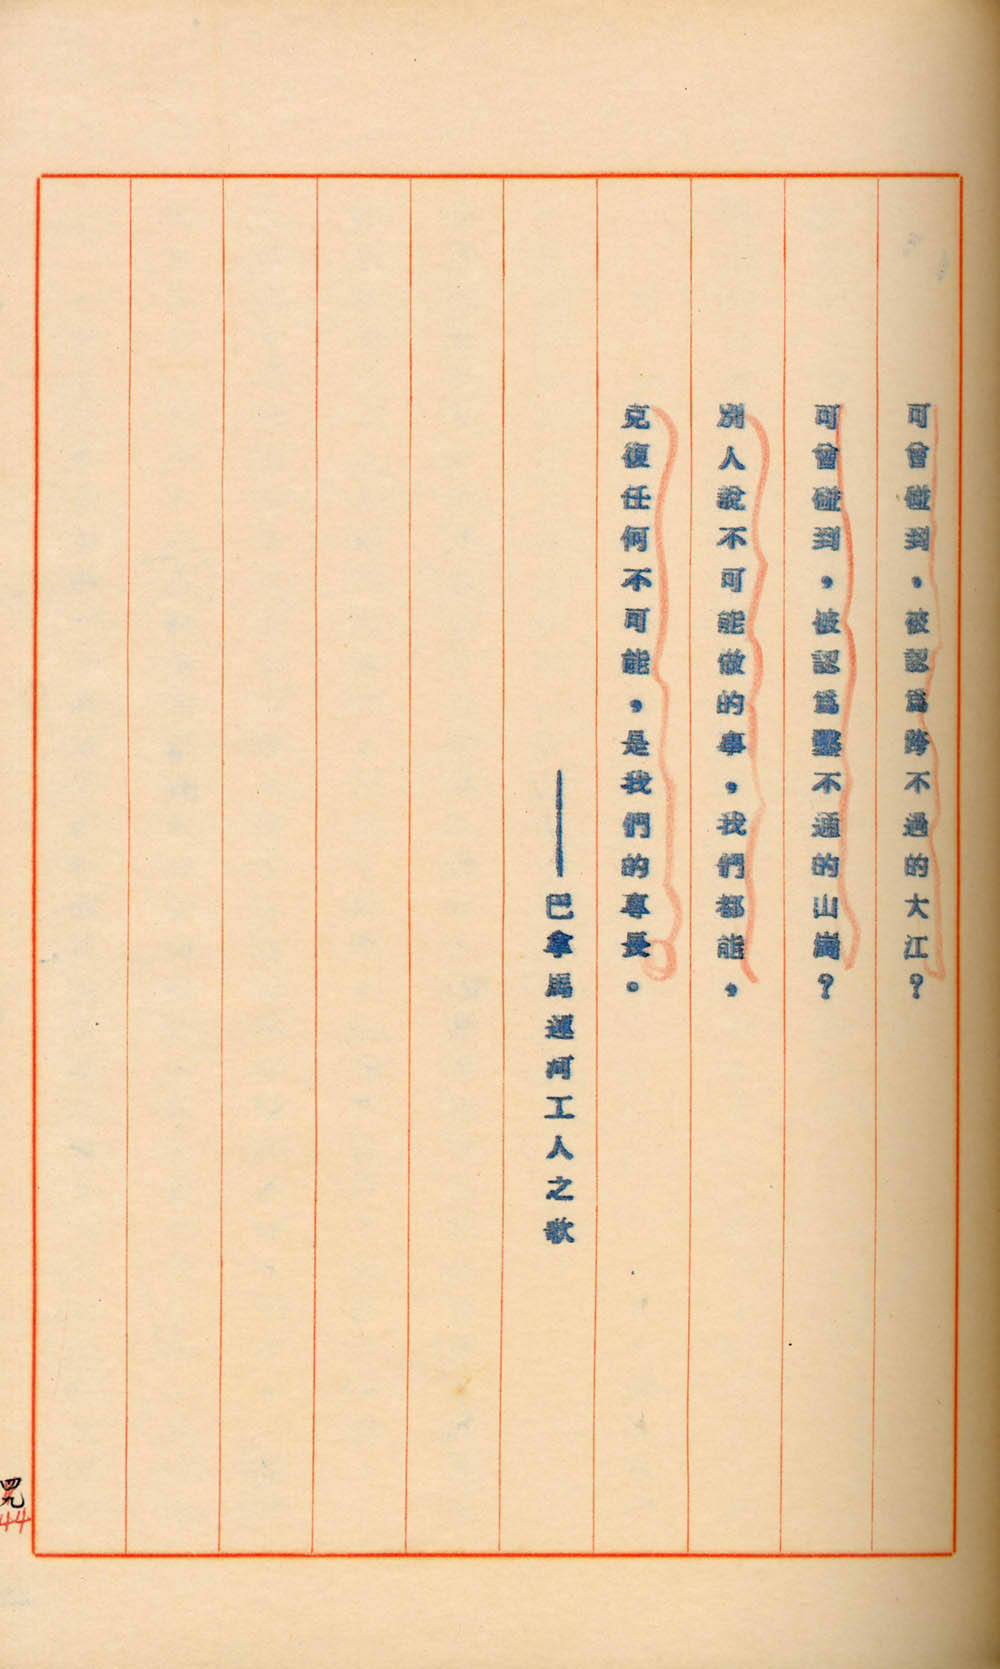 可曾碰到，被認爲跨不過的大江？
可曾碰到，被認爲鑿不通的山崗？
別人說不可能做的事，我們都能，
克復任何不可能，是我們的專長。
——巴拿馬運河工人之歌
44